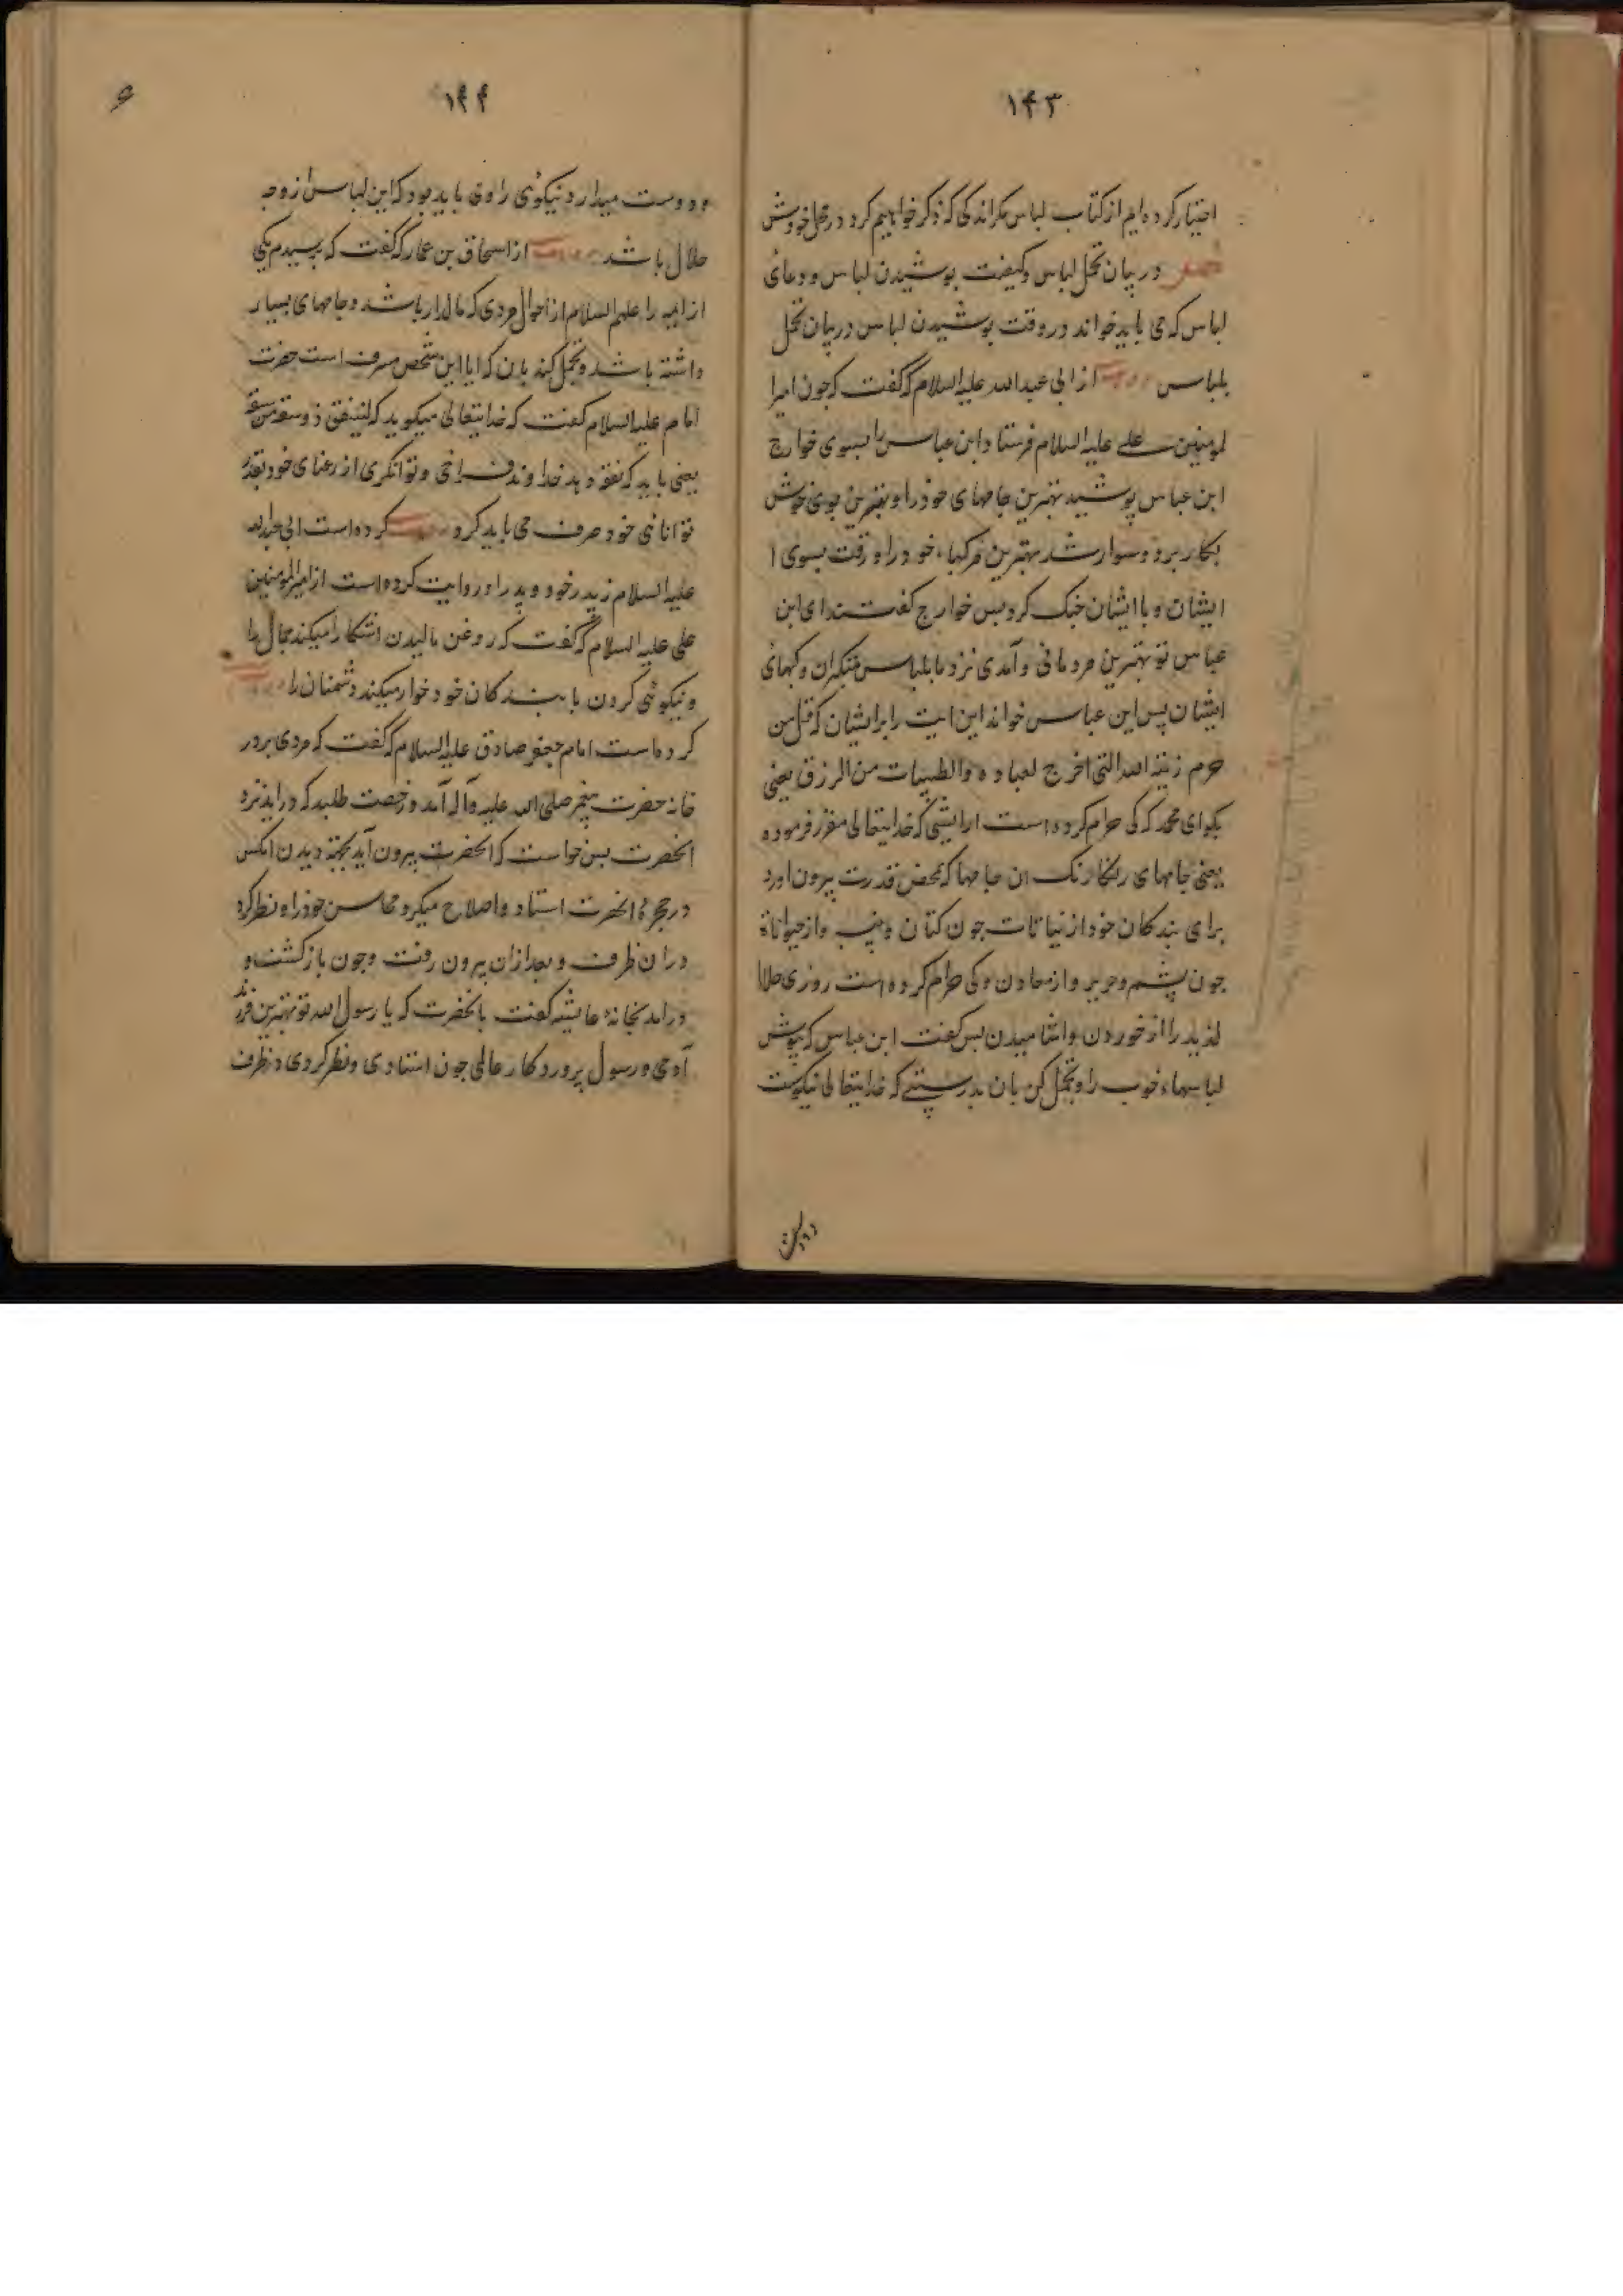 ۱۴۳
اختیار کرده‌ایم از کتاب لباس مکراندکی که ذکر خواهیم کرد در محل خودش
فصل در بیان تجمل لباس و کیفیت پوشیدن لباس و دعای
لباس که می باید خواند در وقت پوشیدن لباس در بیان تجمل
بلباس روایت از ابی عبدالله علیه السلام که گفت که چون امیرا
لمومنین علی علیه السلام فرستاد ابن عباس را بسوی خوارج
ابن عباس پوشید بهترین جامهای خود را و بهترین بوی خوش
بکار برد و سوار شد بهترین مرکبهاء خود را و رفت بسوی ا
ایشان و با ایشان جنک کرد پس خوارج گفتند ای ابن
عباس تو بهترین مردمانی و آمدی نزد ما بلباس متکبران و کبهای
ایشان پس ابن عباس خواند این ایت را بر ایشان که قل من
حرم زینة الله التی اخرج لعباده والطیبات من الرزق یعنی
بکو ای محمد که کی حرام کرده است ارایشی که خدایتعالی مقرر فرموده
یعنی جامهای رنکارنک ان جامها که بمحض قدرت بیرون اورد
برای بندکان خود از نباتات چون کتان و پنبه و از حیوانات
چون پشم و حریر و از معادن و کی حرام کرده است روزی حلال
لذیذ را از خوردن و اشامیدن پس گفت ابن عباس که بپوش
لباسهاء خوب را و تجمل کن بان بدرستی که خدایتعالی نیکوست
۱۴۴
و دوست میدارد نیکوئی را و می باید بود که این لباس از وجه
حلال باشد روایت از اسحاق بن عمار که گفت که پرسیدم یکی
از ایمه را علیهم السلام از احوال مردی که مالدار باشد و جامهای بسیار
داشته باشد و تجمل کند بان که ایا این شخص مسرف است حضرت
امام علیه السلام گفت که خدایتعالی میکوید که لینفق ذو سعة من سعته
یعنی باید که نفقه دهد خداوند فراخی و توانکری از غنای خود بقدر
توانائی خود صرف می باید کرد روایت کرده است ابی عبدالله
علیه السلام ز پدر خود و پدر او روایت کرده است از امیرالمومنین
علی علیه السلام که گفت که روغن مالیدن اشکارا میکند جمال را
و نیکوئی کردن با بندکان خود خوار میکند دشمنان را روایت
کرده است امام جعفر صادق علیه السلام که گفت که مردی بر در
خانه حضرت پیغمبر صلی الله علیه و آله آمد و رخصت طلبید که دراید نزد
انحضرت پس خواست که انحضرت بیرون آید بجهة دیدن انکس
در حجره انحضرت استاد و اصلاح میکرد محاسن خود را و نظر کرد
در ان ظرف و بعد از ان بیرون رفت و چون بازکشت و
درامد بخانه عایشه گفت بانحضرت که یا رسول الله تو بهترین فرزند
آدمی و رسول پروردکار عالمی چون استادی و نظر کردی در ظرف